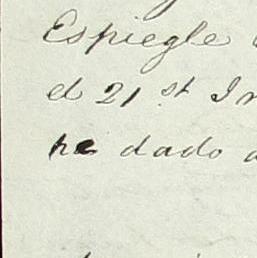 Espiegle
el 21st
he dado